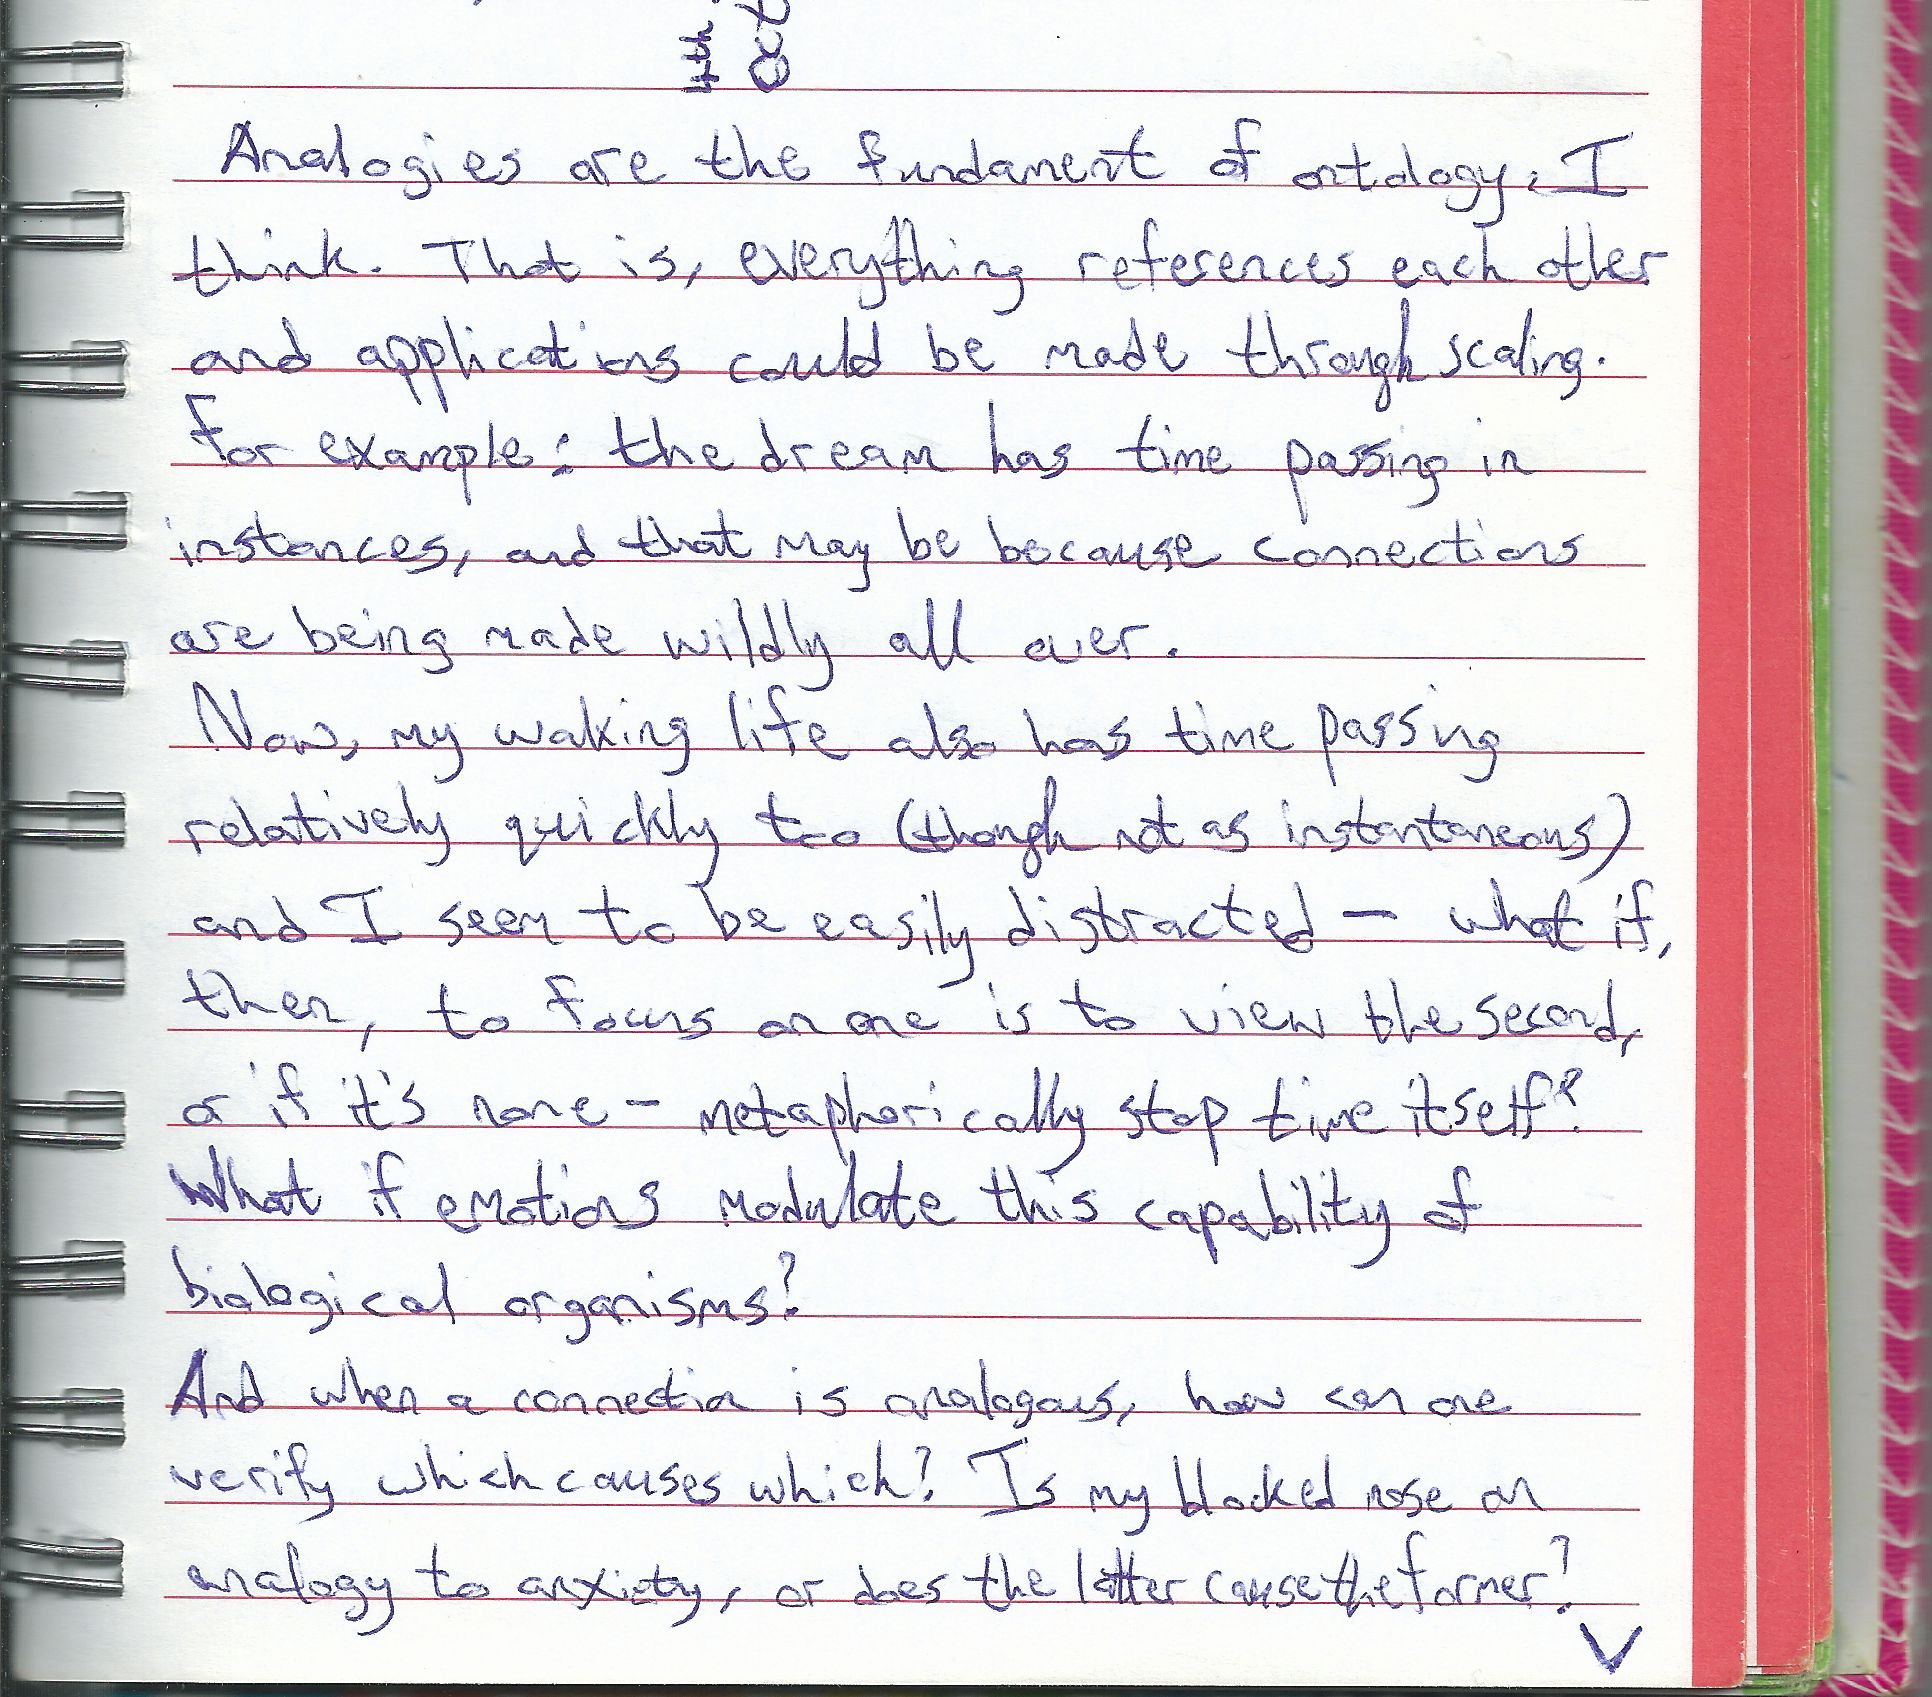 4th Oct
Analogies are the fundament of ontology, I
think. That is, everything references each other
and applications could be made through scaling.
For example: the dream has time passing in
instances, and that may be because connections
are being made wildly all over.
Now, my waking life also has time passing
relatively quickly too (though not as instantaneous)
and I seem to be easily distracted – what if,
then, to focus on one is to view the second,
or if it's none – metaphorically stop time itself?
What if emotions modulate this capability of
biological organisms?
And when a connection is analogous, how can one
verify which causes which? Is my blocked nose an
analogy to anxiety, or does the latter cause the former?